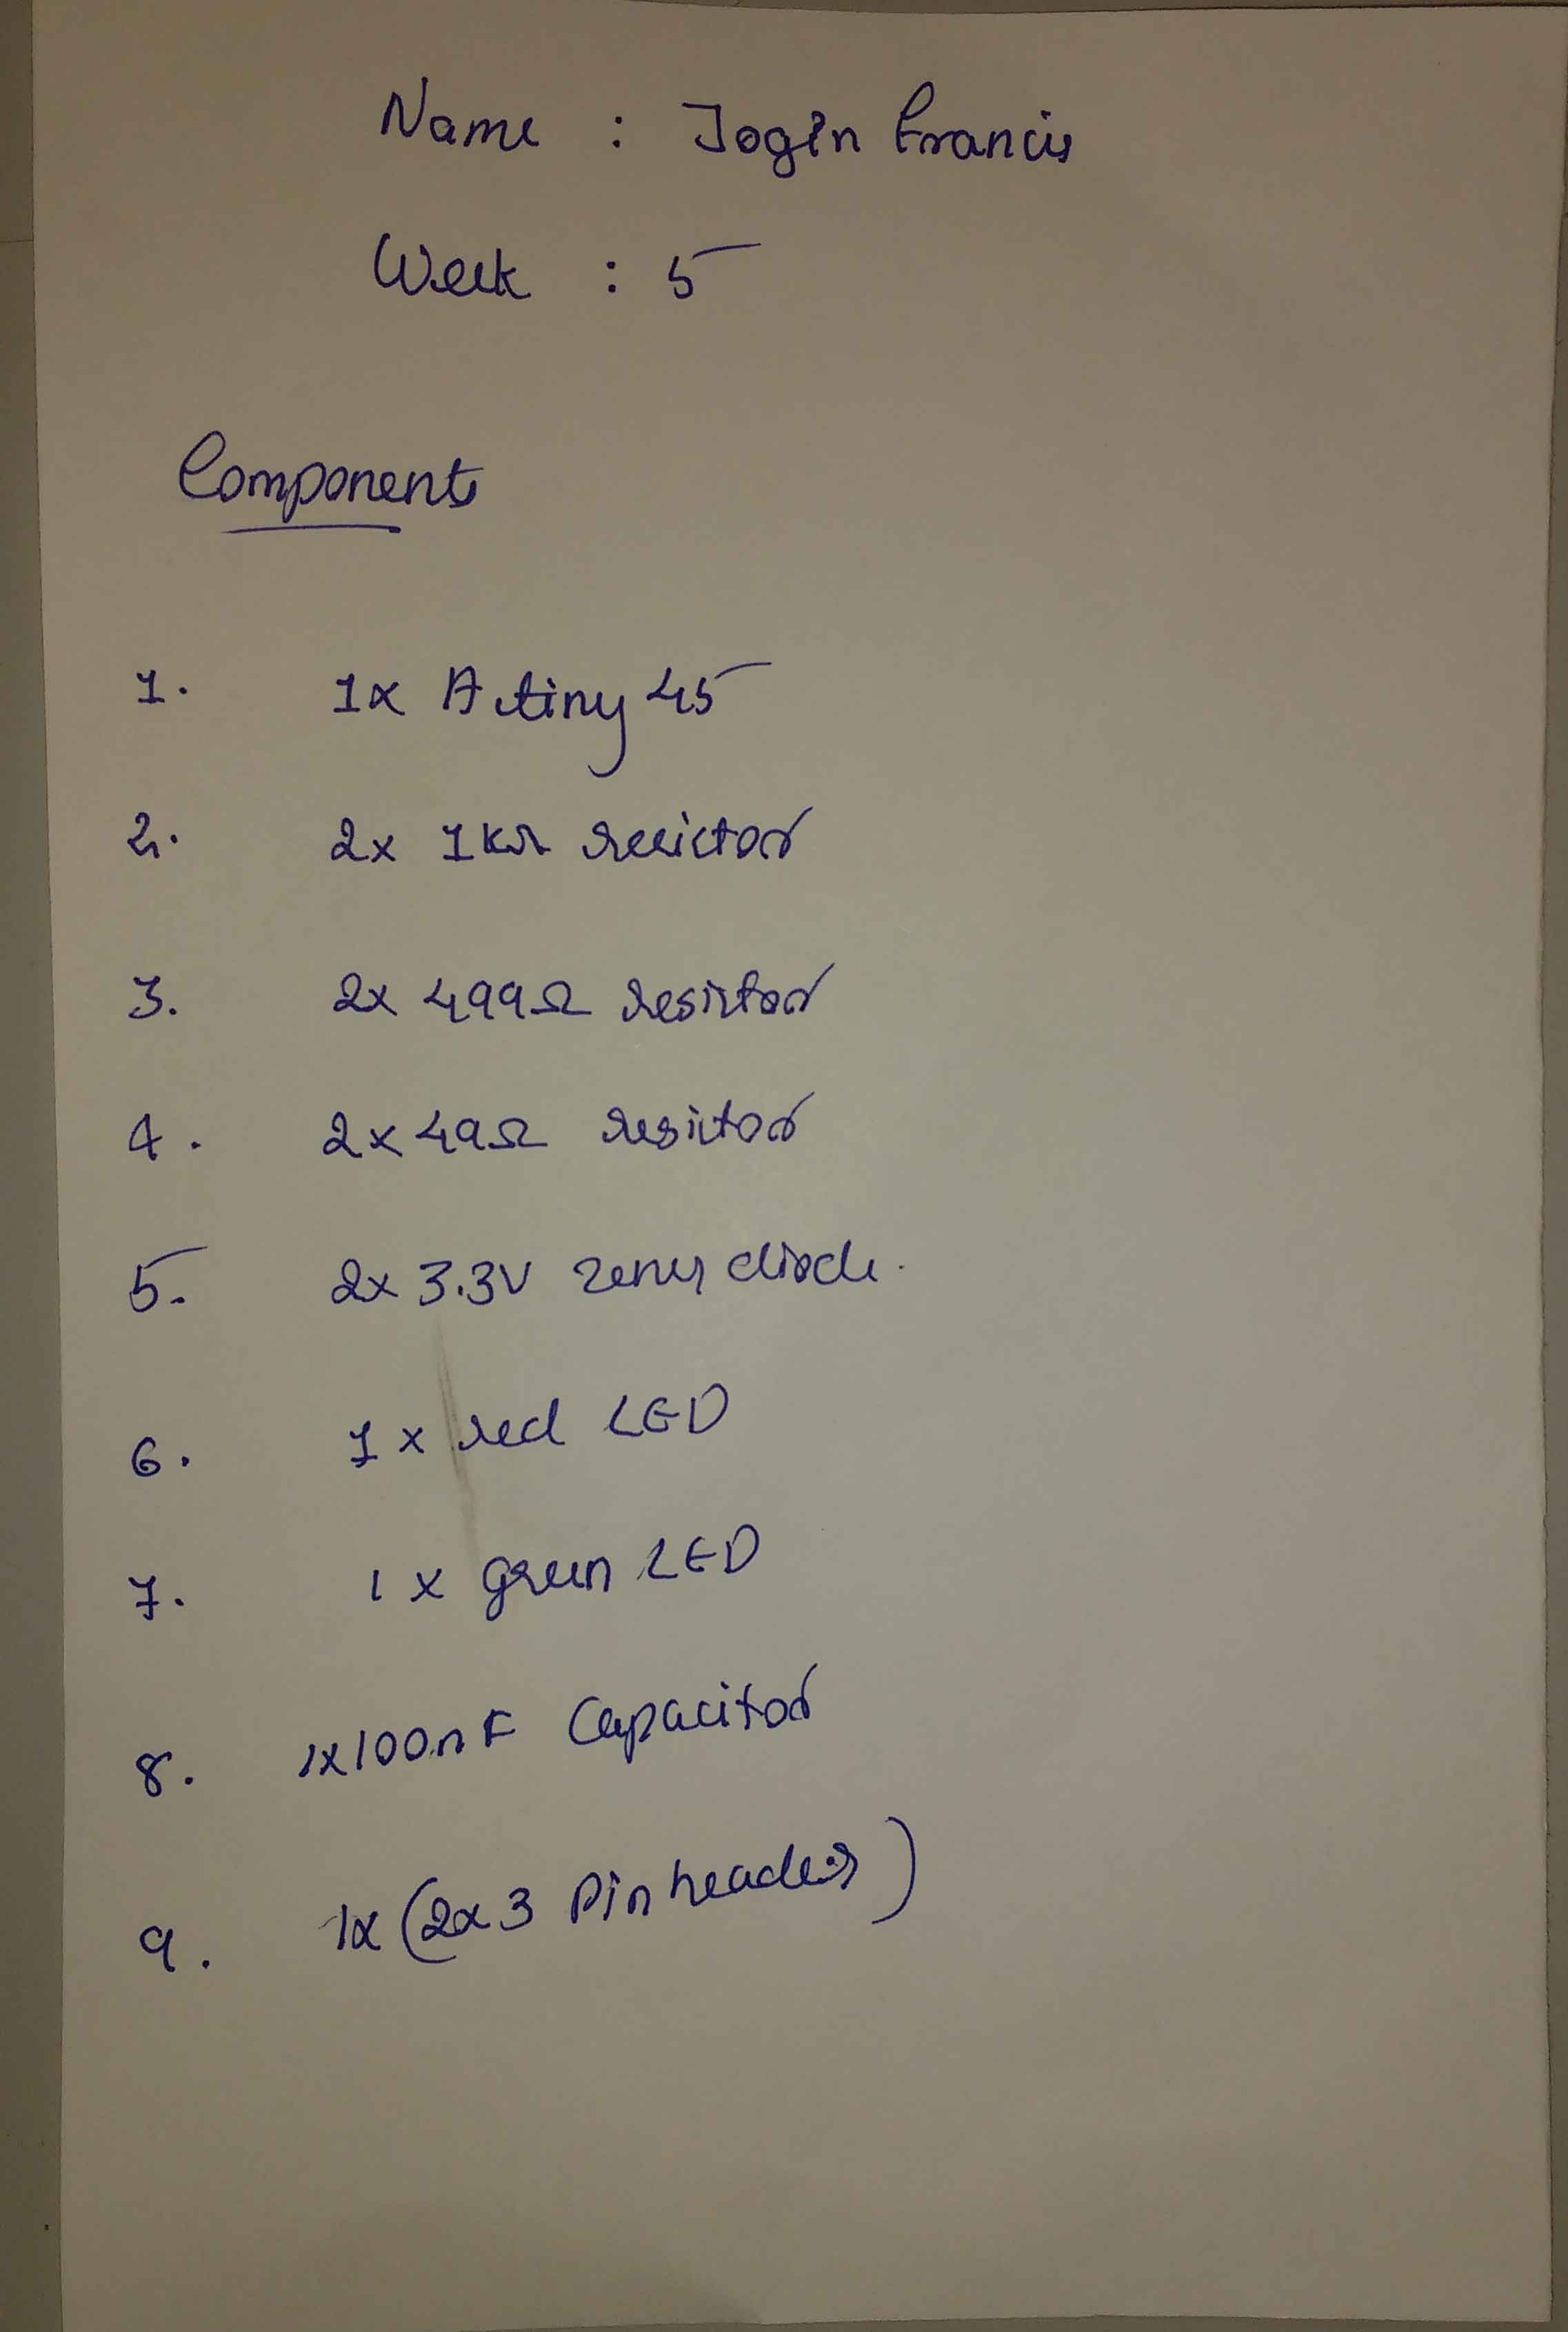 Name : Jogin Francis
Week : 5
Components
1. 1x Attiny 45
2. 2x 1KΩ resistor
3. 2x 499Ω resistor
4. 2x 49Ω resistor
5. 2x 3.3V zener diode.
6. 1x red LED
7. 1x green LED
8. 1x100nF Capacitor
9. 1x (2x3 Pin header)